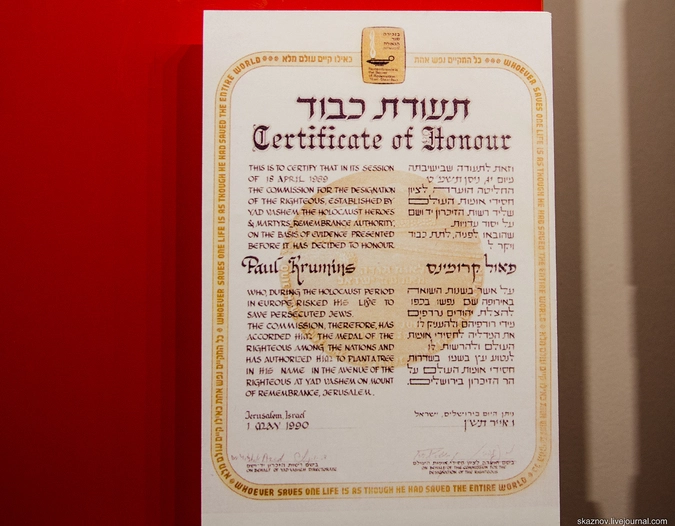 WHOEVER SAVES ONE LIFE IS AS THOUGH HE HAD SAVED THE ENTIRE WORLD
כאילו קיים עולם מלא
כל המקיים נפש אחת
תעודת כבוד
Certificate of Honour
THIS IS TO CERTIFY THAT IN ITS SESSION
OF 18 APRIL 1989
THE COMMISSION FOR THE DESIGNATION
OF THE RIGHTEOUS, ESTABLISHED BY
YAD VASHEM, THE HOLOCAUST HEROES
& MARTYRS REMEMBRANCE AUTHORITY,
ON THE BASIS OF EVIDENCE PRESENTED
BEFORE IT HAS DECIDED TO HONOUR
Paul Krumins
WHO, DURING THE HOLOCAUST PERIOD
IN EUROPE, RISKED HIS LIFE TO
SAVE PERSECUTED JEWS.
THE COMMISSION, THEREFORE, HAS
ACCORDED HIM THE MEDAL OF THE
RIGHTEOUS AMONG THE NATIONS AND
HAS AUTHORIZED HIM TO PLANT A TREE
IN HIS NAME IN THE AVENUE OF THE
RIGHTEOUS AT YAD VASHEM ON MOUNT
OF REMEMBRANCE, JERUSALEM.
Jerusalem, Israel
1 MAY 1990
וזאת לתעודה שבישיבתה
החליטה הועדה לציון
חסידי אומות העולם
שליד רשות הזיכרון יד ושם
על יסוד עדויות
שהובאו לפניה, לתת כבוד
ויקר ל
פאול קרומינס
על אשר בשנות השואה
באירופה שם נפשו בכפו
להצלת יהודים נרדפים
העולם ולהרשות לו
לנטוע עץ בשמו בשדרות
חסידי אומות העולם על
הר הזיכרון בירושלים
ניתן היום בירושלים, ישראל
ON BEHALF OF YAD VASHEM DIRECTORATE
ON BEHALF OF THE COMMISSION FOR THE
DESIGNATION OF THE RIGHTEOUS
WHOEVER SAVES ONE LIFE IS AS THOUGH HE HAD SAVED THE ENTIRE WORLD
skaznov.livejournal.com